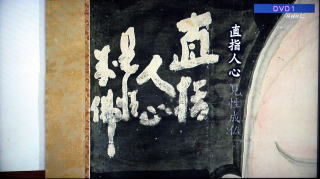 DVD1
直指
人心
見性
成佛
直指人心 見性成仏